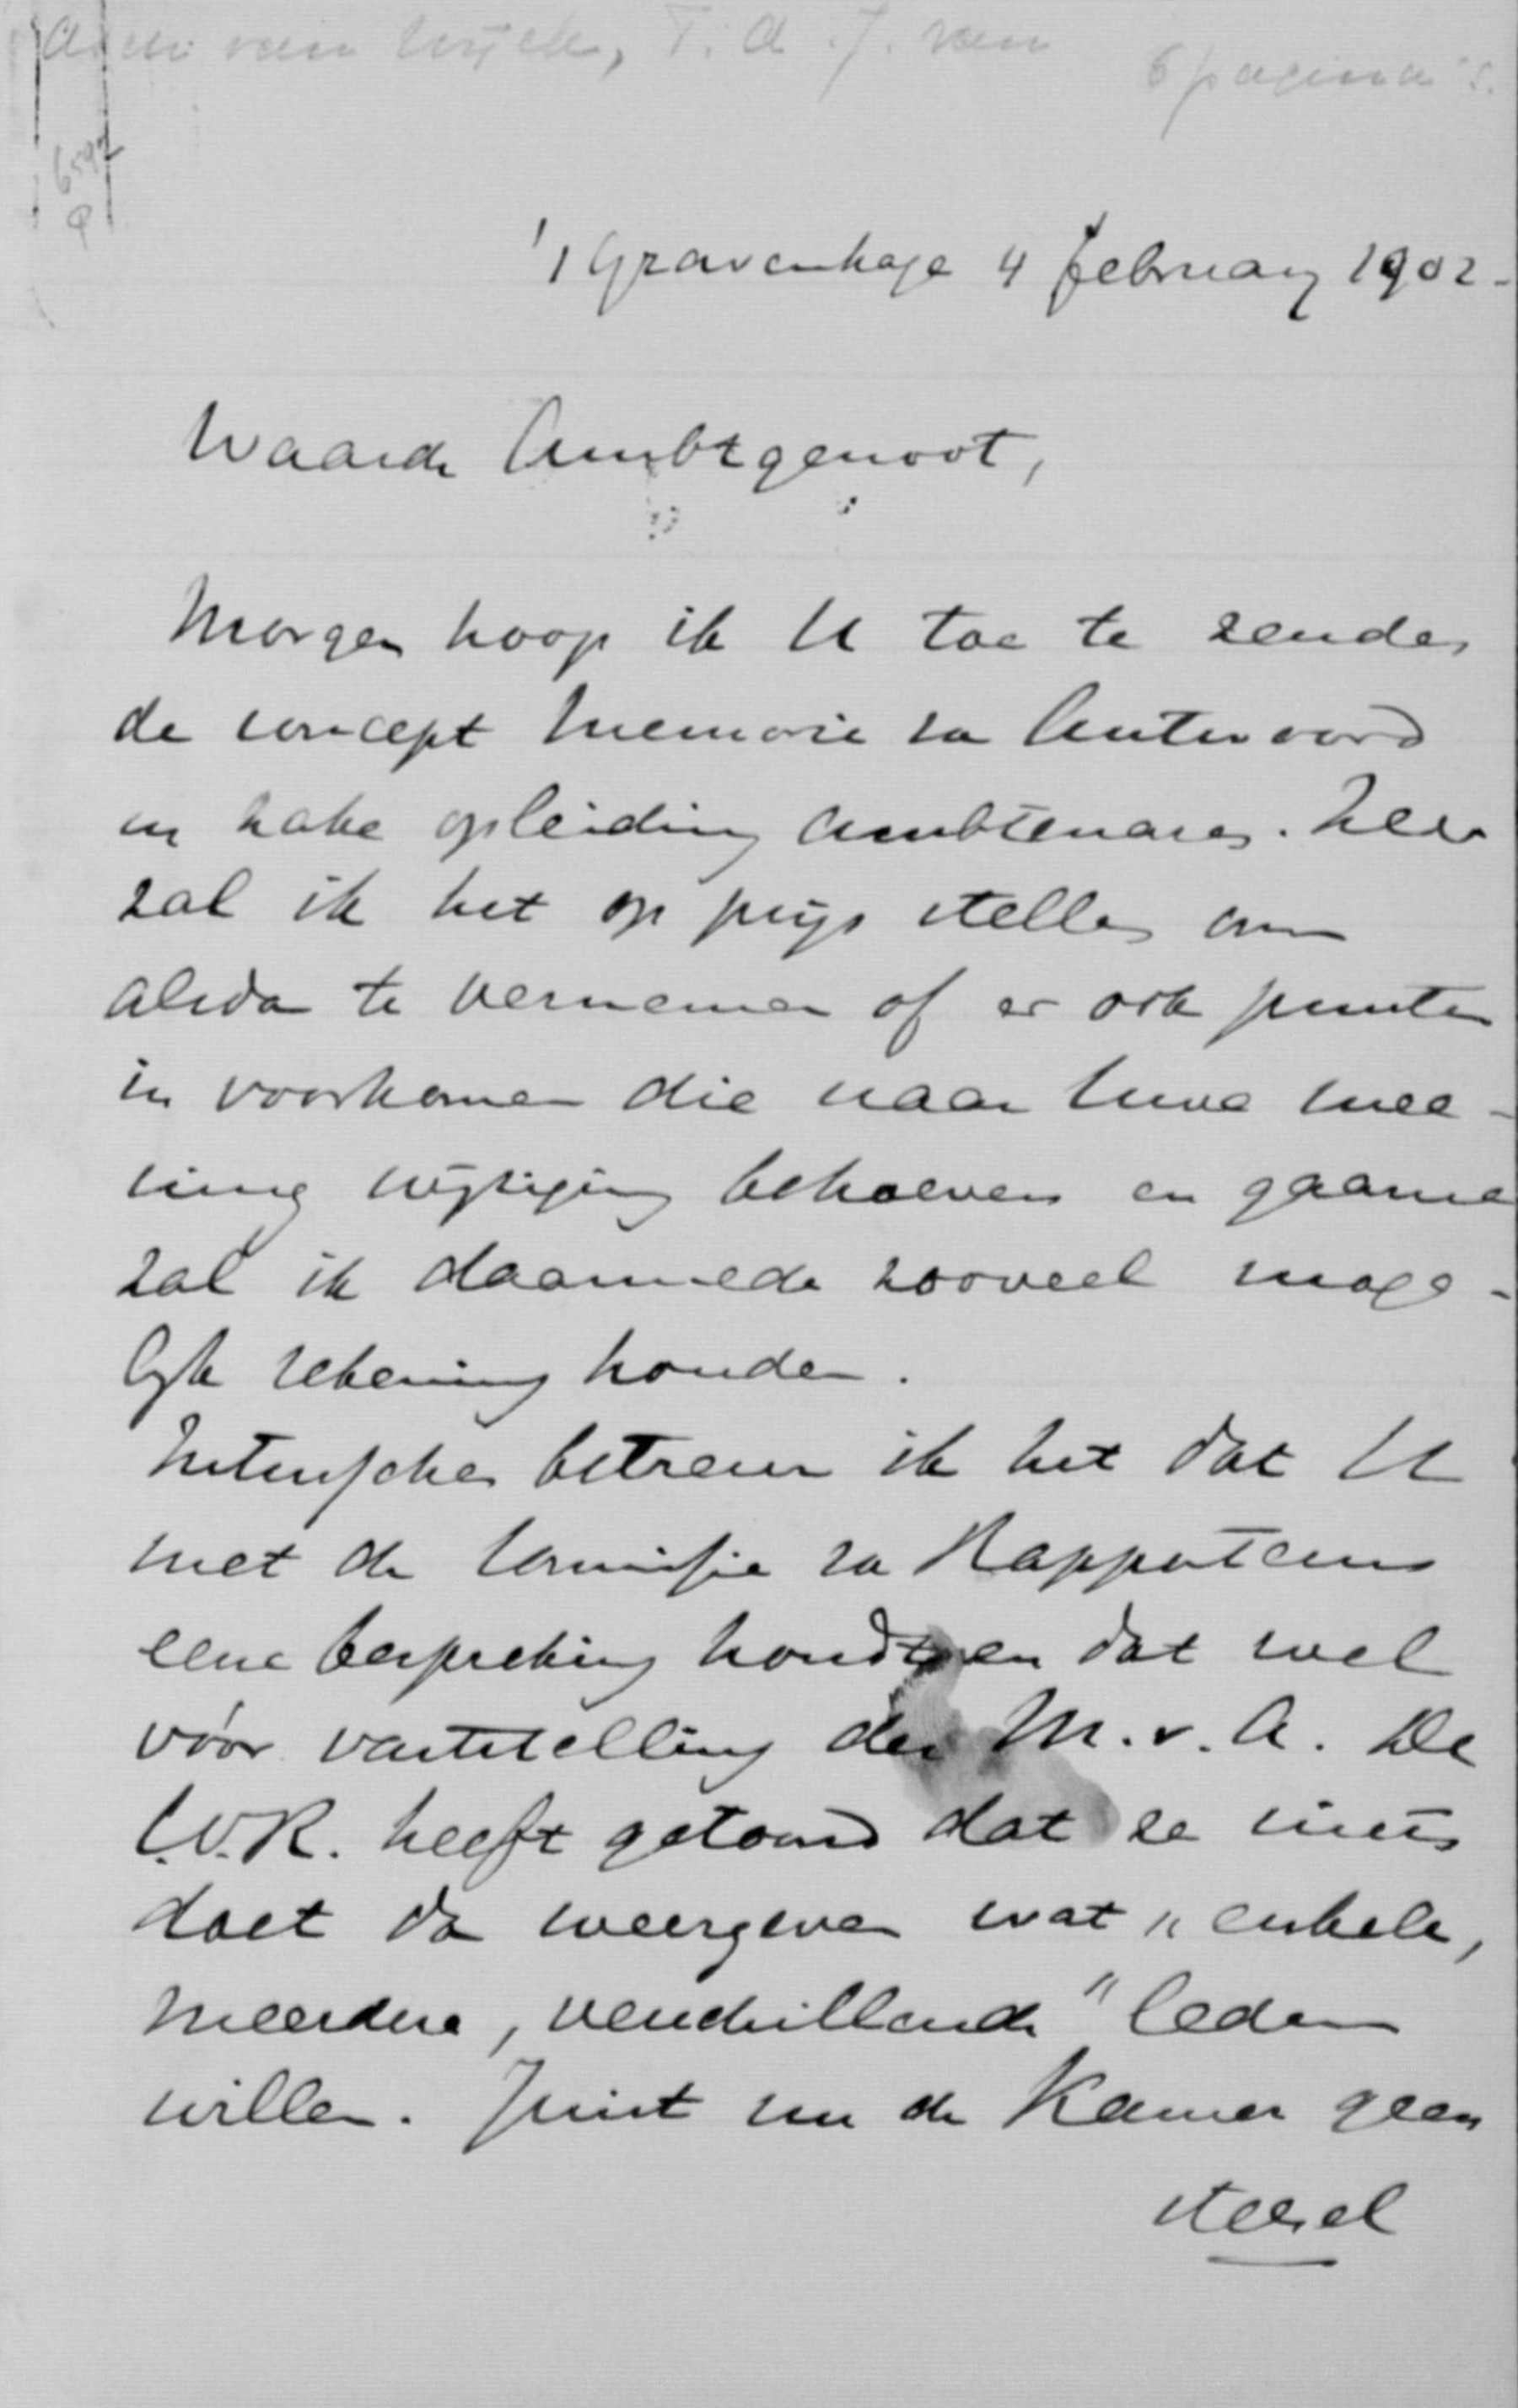 Asch van Wijck, T. A. J. van
6 pagina's.
6592
's Gravenhage 4 february 1902-
Waarde Ambtgenoot,
Morgen hoop ik U toe te zenden
de concept Memorie van Antwoord
in zake opleiding ambtenaren. Zeer
zal ik het op prijs stellen om
alsdan te vernemen of er ook punten
in voorkomen die naar Uwe mee-
ning wijziging behoeven en gaarne
zal ik daarmede zooveel moge-
lijk rekening houden.
Intusschen betreur ik het dat U
met de Commissie van Rapporteurs
eene bespreking houdt en dat wel
vóór vaststelling der M.v.A. De
C.v.R. heeft getoond dat ze niets
doet dan weergeven wat "enkele,
meerdere, verschillende" leden
willen. Juist nu de Kamer geen
stelsel